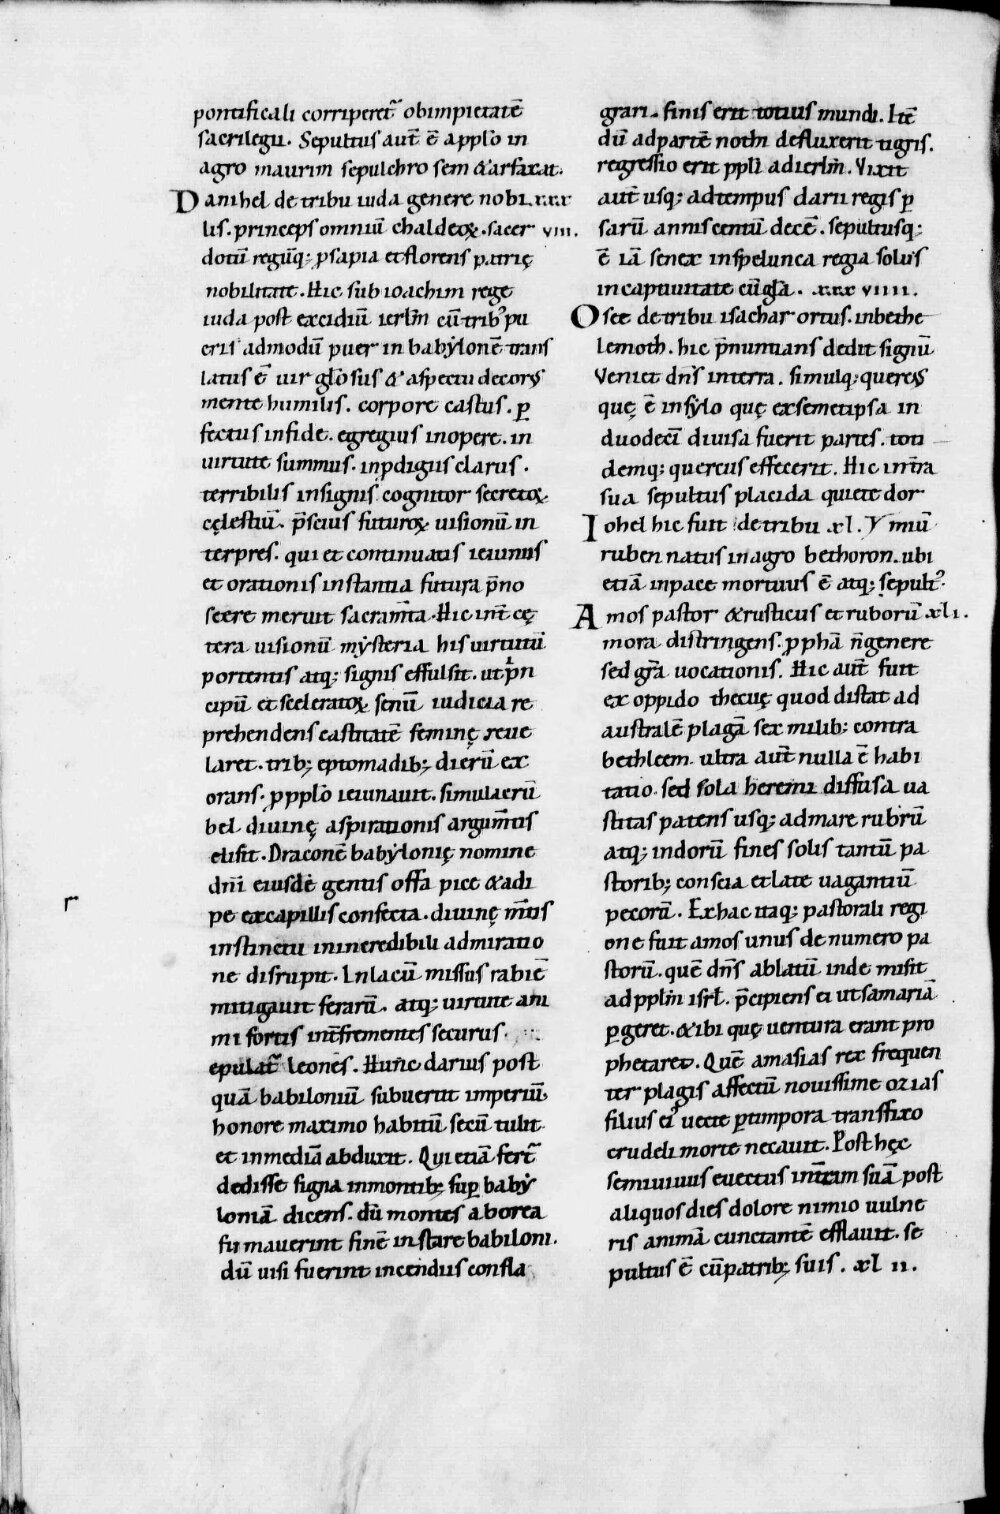 pontificali corriperet̃ obimpietatē
sacrilegii. Sepultus aut̄ ē appl̄o in
agro maurim sepulchro sem & arfaxat.
Danihel de tribu iuda genere nobi.xxx
lis. princeps omniū chaldeoꝝ. sacer viii.
dotū regūq; ꝓsapia et florens patrię
nobilitate. Hic sub ioachim rege
iuda post excidiū ierl̄m cū trib; pu
eris admodū puer in babẏlonē trans
latus ē uir gl̄osus & aspectu decorꝰ
mente humilis. corpore castus. ꝑ
fectus infide. egregius inopere. in
uirtute summus. inꝓdigiis clarus.
terribilis insignis cognitor secretoꝝ
cęlestiū. p̄scius futuroꝝ uisionū in
terpres. qui et continuatis ieiuniis
et orationis instantia futura p̄no
scere meruit sacram̄ta. Hic int̄ cę
tera uisionū mẏsteria his uirtutū
portentis atq; signis effulsit. ut prın
cipū et sceleratoꝝ senū iudicia re
prehendens castitatē feminę reue
laret. trib; eptomadib; dierū ex
orans. ꝓ ppl̄o ieiunauit. simulacrū
bel diuinę aspirationis argum̄tis
elisit. Draconē babẏlonię nomine
dn̄i eiusdē gentis offa pice & adi
pe excapillis confecta. diuinę m̄tis
instinctu inincredibili admiratio
ne disrupit. In lacū missus rabiē
mitigauit ferarū. atq; uirtute ani
mi fortis int̄frementes securus
epulat̃ leones. Hunc darius post
quā babiloniū subuertit imperiū
honore maximo habitū secū tulit
et in mediā abduxit. Qui etiā fert̃
dedisse signa inmontib; suꝑ babẏ
loniā dicens. dū montes a borea
fumauerint finē instare babiloni.
dū uisi fuerint incendiis confla
grari. finis erit totius mundi. Itē
dū ad partē noth̄ defluxerit tigris.
regressio erit ppl̄i ad ierl̄m. Vixit
aut̄ usq; ad tempus darii regis ꝑ
sarū annis centū decē. sepultusq;
ē iā senex inspelunca regia solus
in captiuitate cū gl̄a. xxx viiii.
Osee de tribu isachar ortus. inbethe
lemoth. hic p̄nuntians dedit signū
Veniet dn̄s interra. simulq; quercꝰ
quę ē insẏlo quę exsemetipsa in
duodecī diuisa fuerit partes. toti
demq; quercus effecerit. Hic int̄ra
sua sepultus placida quiete dor
Iohel hic fuit de tribu .xl. miū
ruben natus inagro bethoron. ubi
etiā inpace mortuus ē atq; sepult;
Amos pastor & rusticus et ruborū xli.
mora distringens. ꝓphā n̄ genere
sed gr̄a uocationis. Hic aut̄ fuit
ex oppido thecuę quod distat ad
australē plagā sex milib; contra
bethleem ultra aut̄ nulla ē habi
tatio sed sola heremi diffusa ua
stitas patens usq; ad mare rubrū
atq; indorū fines solis tantū pa
storib; conscia et late uagantiū
pecorū. Ex hac itaq; pastorali regi
one fuit amos unus de numero pa
storū. quē dn̄s ablatū inde misit
ad ppl̄m isrl̄. p̄cipiens ei ut samariā
ꝑgeret. & ibi quę uentura erant pro
phetaret. Quē amasias rex frequen
ter plagis affectū nouissime ozias
filius eiꝰ uecte ꝑ timpora transfixo
crudeli morte necauit. Post hęc
semiuiuus euectus int̄ram suā post
aliquos dies dolore nimio uulne
ris animā cunctantē efflauit. se
pultus ē cū patrib; suis. xl ii.